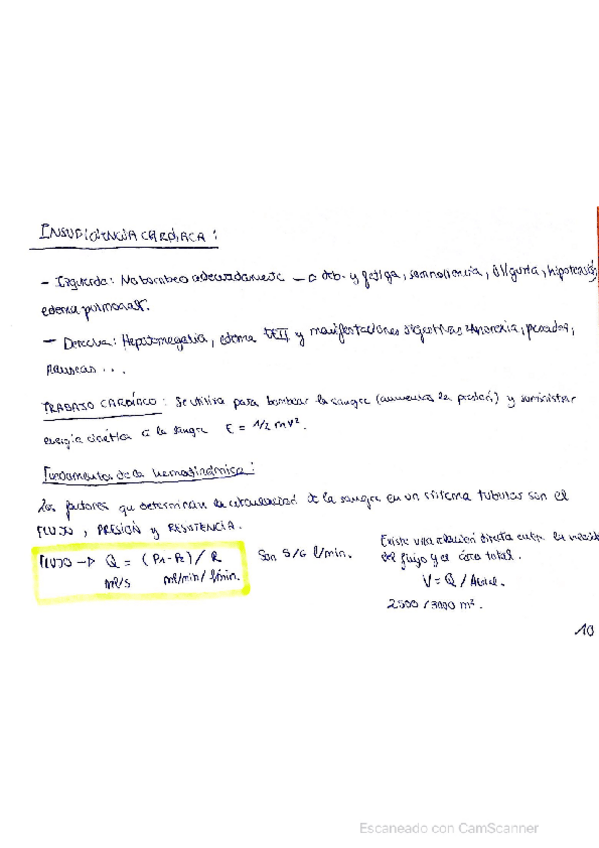 INSUFICIENCIA CARDÍACA :
- Izquierda: No bombeo adecuadamente → deb. y fatiga, somnolencia, oliguria, hipotensión,
edema pulmonar.
- Derecha: Hepatomegalia, edema EEII y manifestaciones digestivas: Anorexia, pesadez,
náuseas ...
TRABAJO CARDÍACO : Se utiliza para bombear la sangre (aumentar la presión) y suministrar
energía cinética a la sangre E = 1/2 mv².
Fundamentos de la hemodinámica :
Los factores que determinan la circulación de la sangre en un sistema tubular son el
FLUJO, PRESIÓN y RESISTENCIA.
FLUJO → Q = (P1-P2) / R Son 5/6 l/min.
ml/s ml/min / l/min.
Existe una relación directa entre la
del flujo y el área total.
V = Q / Área.
2500 / 3000 m².
10
Escaneado con CamScanner